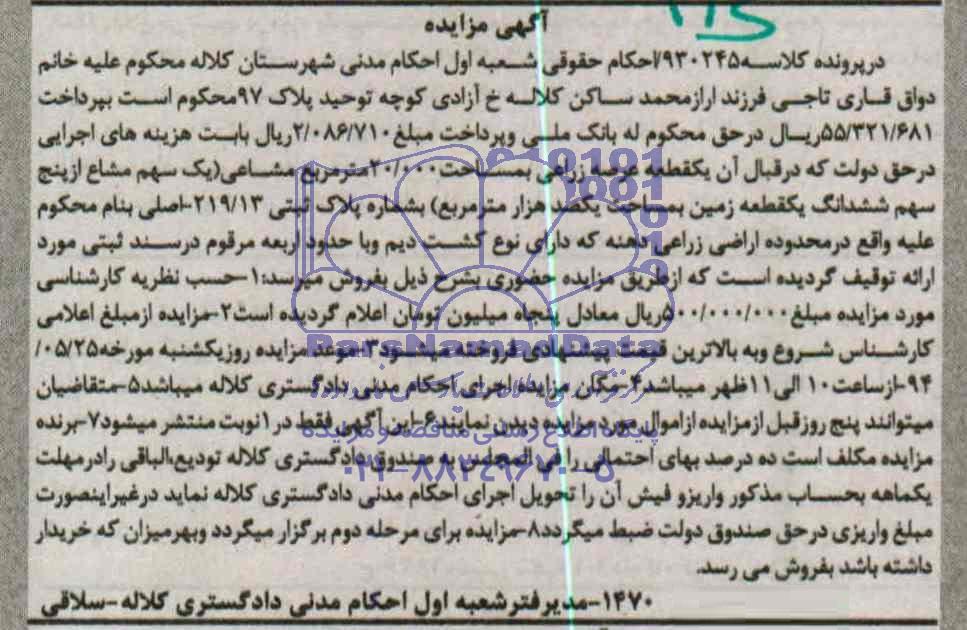 آگهی مزایده
درپرونده کلاسه۹۳۰۲۴۵/احکام حقوقی شعبه اول احکام مدنی شهرستان کلاله محکوم علیه خانم
دواق قاری تاجی فرزند ارازمحمد ساکن کلاله خ آزادی کوچه توحید پلاک ۹۷محکوم است بپرداخت
۵۵/۳۲۱/۶۸۱ریال درحق محکوم له بانک ملی وپرداخت مبلغ۲/۰۸۶/۷۱۰ریال بابت هزینه های اجرایی
درحق دولت که درقبال آن یکقطعه عرصه زراعی بمساحت۲۰/۰۰۰مترمربع مشاعی(یک سهم مشاع ازپنج
سهم ششدانگ یکقطعه زمین بمساحت یکصد هزار مترمربع) بشماره پلاک ثبتی ۲۱۹/۱۳-اصلی بنام محکوم
علیه واقع درمحدوده اراضی زراعی دهنه که دارای نوع کشت دیم وبا حدود اربعه مرقوم درسند ثبتی مورد
ارائه توقیف گردیده است که ازطریق مزایده حضوری بشرح ذیل بفروش میرسد:۱-حسب نظریه کارشناسی
مورد مزایده مبلغ۵۰۰/۰۰۰/۰۰۰ریال معادل پنجاه میلیون تومان اعلام گردیده است۲-مزایده ازمبلغ اعلامی
کارشناس شروع وبه بالاترین قیمت پیشنهادی فروخته میشود۳-موعد مزایده روزیکشنبه مورخه۰۵/۲۵/
۹۴-ازساعت۱۰ الی۱۱ظهر میباشد۴-مکان مزایده اجرای احکام مدنی دادگستری کلاله میباشد۵-متقاضیان
میتوانند پنج روزقبل ازمزایده ازاموال مورد مزایده دیدن نمایند۶-این آگهی فقط در۱نوبت منتشر میشود۷-برنده
مزایده مکلف است ده درصد بهای احتمالی را فی المجلس به صندوق دادگستری کلاله تودیع،الباقی رادرمهلت
یکماهه بحساب مذکور واریزو فیش آن را تحویل اجرای احکام مدنی دادگستری کلاله نماید درغیراینصورت
مبلغ واریزی درحق صندوق دولت ضبط میگردد۸-مزایده برای مرحله دوم برگزار میگردد وبهرمیزان که خریدار
داشته باشد بفروش می رسد.
۱۴۷۰-مدیردفترشعبه اول احکام مدنی دادگستری کلاله-سلاقی
ParsNamadData
پایگاه اطلاع رسانی مناقصه و مزایده
۰۲۱-۸۸۳۴۹۶۷۰-۵